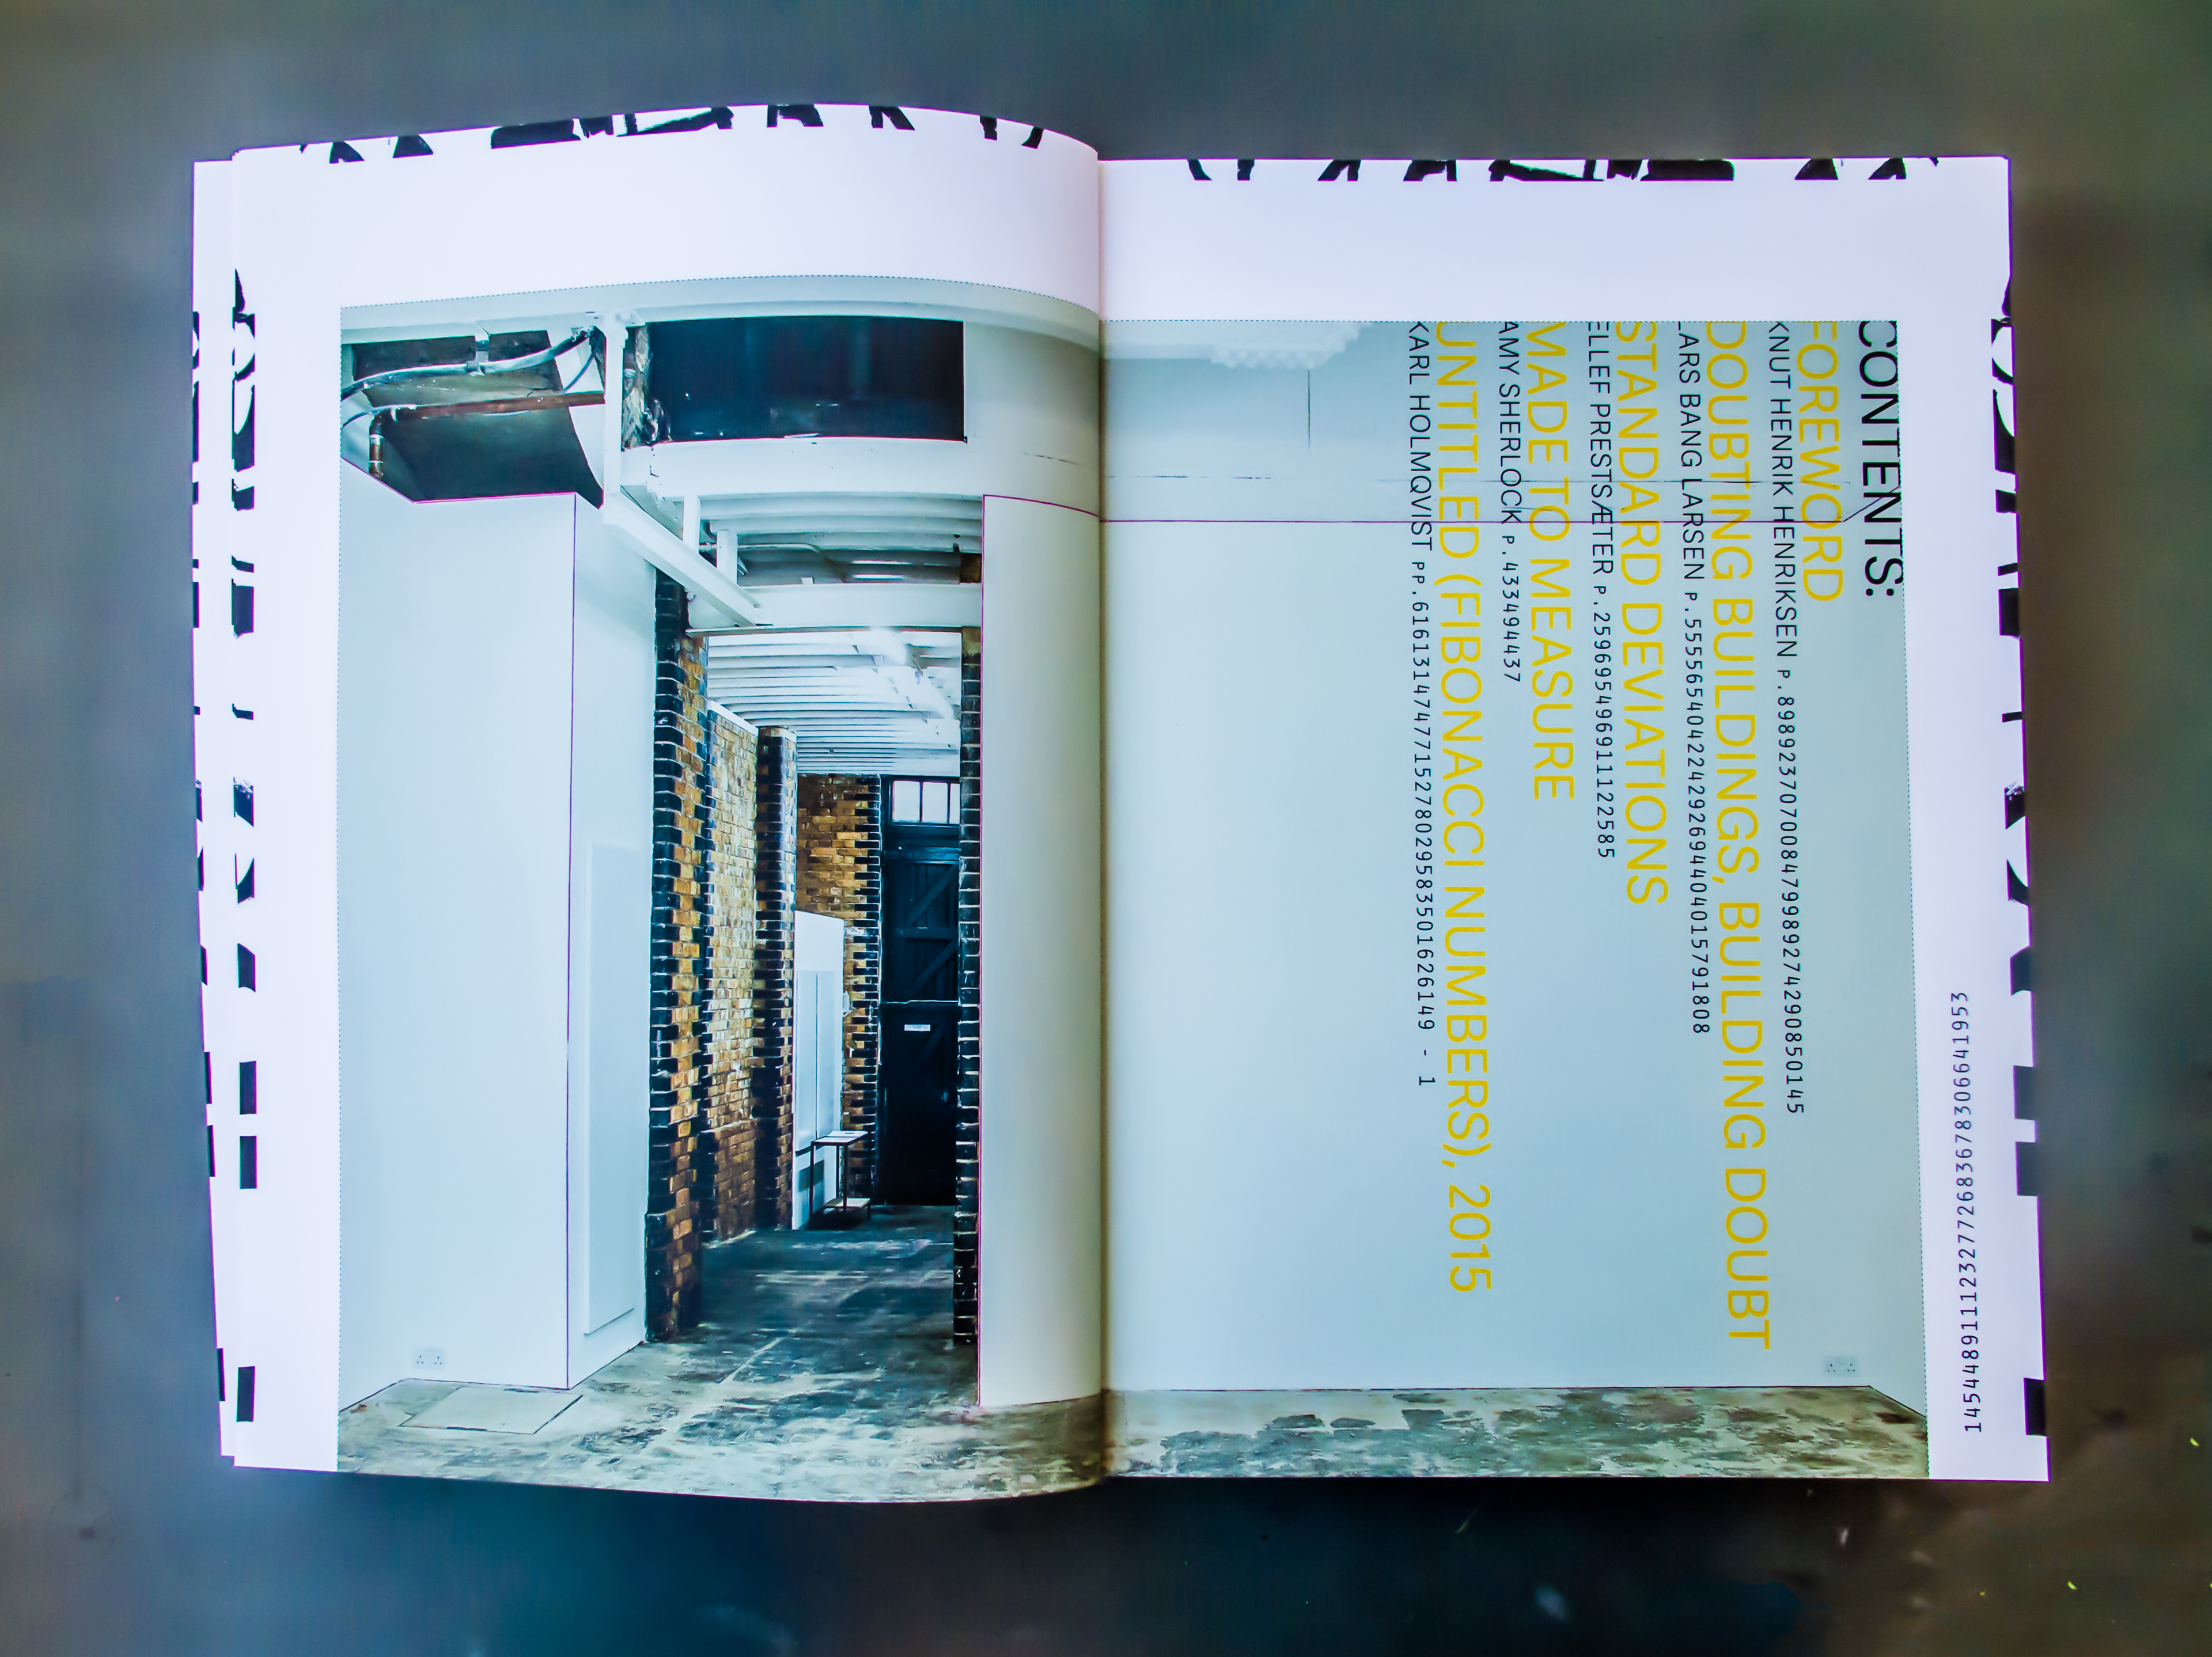 CONTENTS:
FOREWORD
KNUT HENRIK HENRIKSEN P.898923707008479989274290850145
DOUBTING BUILDINGS, BUILDING DOUBT
LARS BANG LARSEN P.555565404224292694404015791808
STANDARD DEVIATIONS
ELLEF PRESTSÆTER P.259695496911122585
MADE TO MEASURE
AMY SHERLOCK P.433494437
UNTITLED (FIBONACCI NUMBERS), 2015
KARL HOLMQVIST PP.6161314747715278029583501626149 - 1
14544891112327726836783066641953